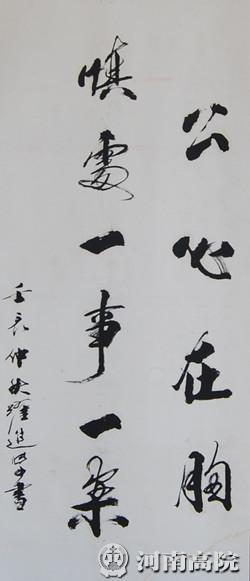 公心在胸
慎處一事一案
壬辰仲秋
進
書
河南高院